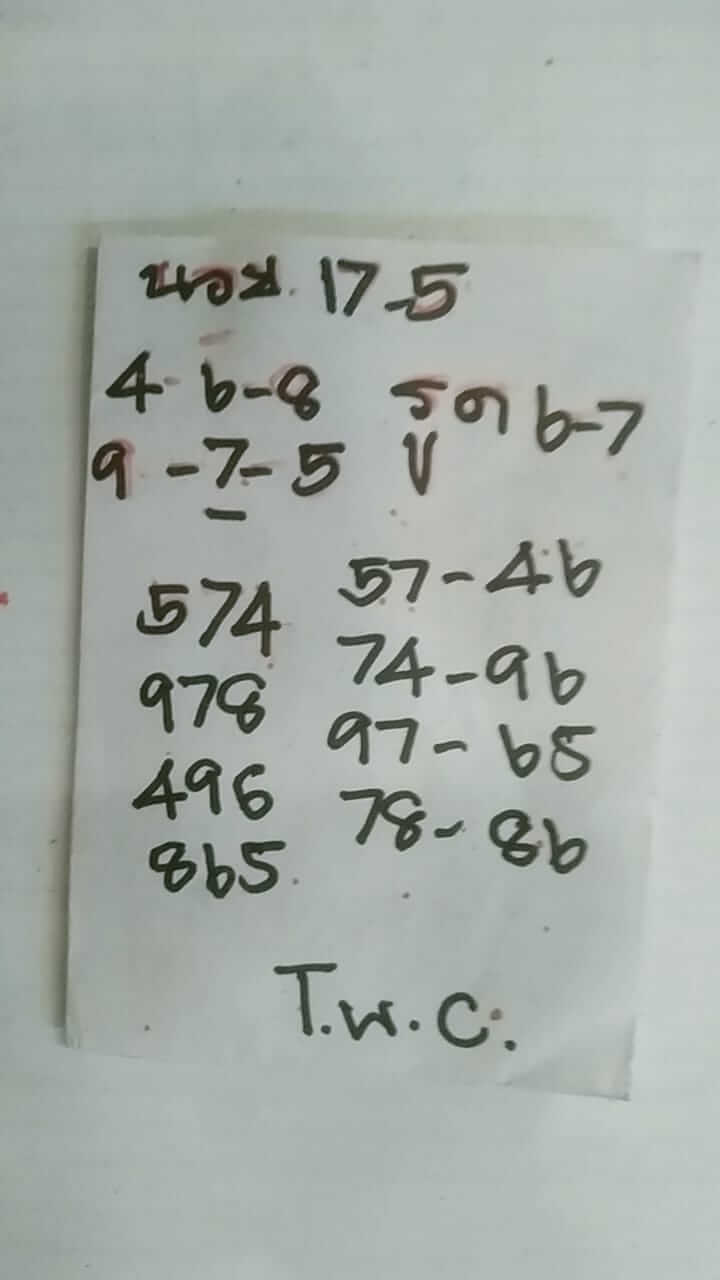 นอย. 17-5
4-6-8 รูด 6-7
9-7-5
574 57-46
978 74-96
496 97-65
865 78-86
T.W.C.